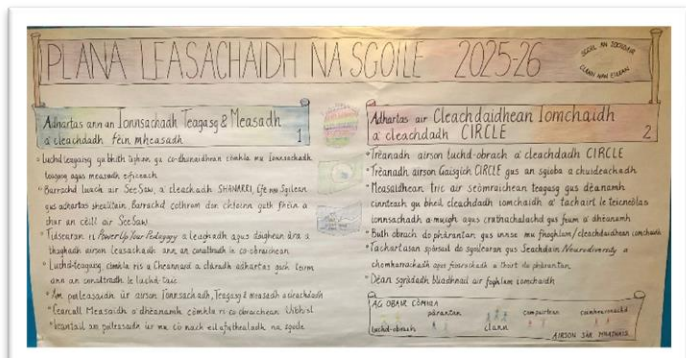 PLANA LEASACHAIDH NA SGOILE 2025-26
SGOIL AN
CLANN NAN EILEAN
Adhartas ann an Ionnsachadh Teagasg & Measadh
a' cleachdadh fèin mheasadh 1
luchd-teagaisg gu bhith aghaidh co-dhùnaidhean còmhla mu ionnsachadh
teagasg agus measadh èifeachdach
Barrachd luach air SeeSaw, a' cleachdadh SHANARRI,
gus adhartas sheulltainn. Barrachd cothrom don chloinn guth fhèin a
chur an cèill air SeeSaw
Tidsearan ri Power Up Your Pedagogy a leughadh agus
thughadh airson leasachadh ann an conaltradh is co-obrachean
Luchd-teagaisg còmhla ris a' Cheannard a clàradh adhartas gach teirm
ann an conaltradh le luchd-taic
Am paileasaidh ùr airson Ionnsachadh, Teagasg & Measadh a chleachdadh
Cearcall Measaidh a dhèanamh còmhla ri co-obraichean
paileasaidh ùr mu co nach eil a' frithealadh na sgoile
Adhartas air Cleachdaidhean Iomchaidh
a' cleachdadh CIRCLE 2
Trèanadh airson luchd-obrach a' cleachdadh CIRCLE
Trèanadh airson Gaisgich CIRCLE gus an sgioba a chuideachadh
Measaidhean tric air seòmraichean teagaisg gus dèanamh
cinnteach gu bheil cleachdadh iomchaidh a' tachairt le teicneòlas
ionnsachadh a-muigh agus cruthachalachd gus fuaim a dhèanamh
Buth obrach do phàrantan gus innse mu fhoghlam/cleachdaidhean iomchaidh
Tachartasan spòrsail do sgoilearan gus Seachdain Neurodiversity a
chomharrachadh agus fiosrachadh a thoirt do phàrantan
Dèan sgrùdadh Nàiseanail air foghlam iomchaidh
AG OBAIR CÒMHLA
luchd-obrach pàrantan clann compàirtean coimhearsnachd
AIRSON SÀR MHATHAIS